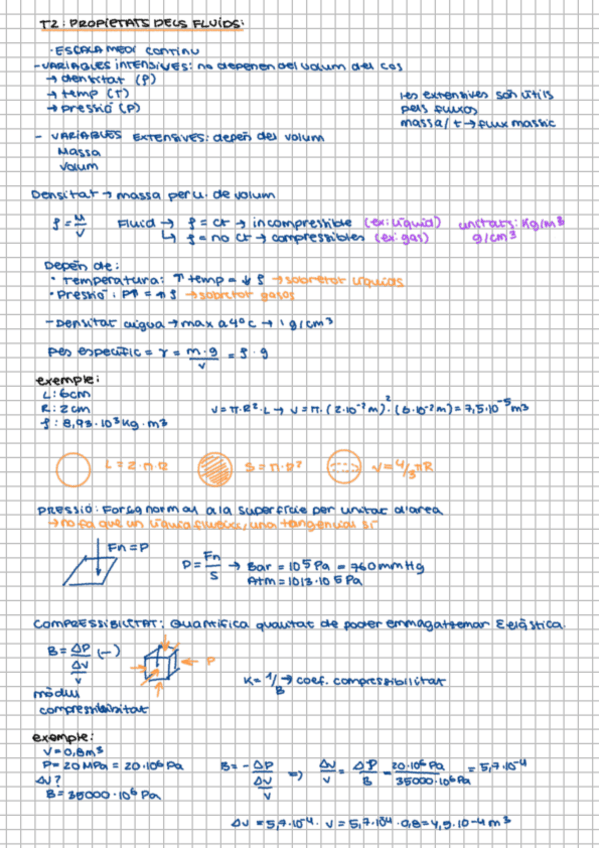 T2: PROPIETATS DELS FLUIDS:
· ESCALA MEDI CONTINU
- VARIABLES INTENSIVES: no depenen del volum del cos
→ densitat (ρ)
→ temp (T)
→ pressió (P)
les extensives són útils
pels fluxos
massa/t → flux massic
- VARIABLES EXTENSIVES: depèn del volum
Massa
Volum
Densitat → massa per u. de volum
ρ = M/V Fluid → ρ = ct → incompressible (ex: líquid) unitats: Kg/m³
↳ ρ = no ct → compressibles (ex: gas) g/cm³
Depèn de:
· Temperatura: ↑ temp = ↓ ρ → sobretot líquids
· Pressió: P↑ = ↑ ρ → sobretot gasos
- Densitat aigua → max a 4ºC → 1 g/cm³
pes específic = γ = m·g/V = ρ · g
exemple:
L: 6cm
R: 2cm V = π·R²·L → V = π·(2·10⁻²m)²·(6·10⁻²m) = 7,5·10⁻⁵ m³
ρ: 8,93·10³ Kg·m³
L = 2·π·R S = π·R² V = 4/3 πR
PRESSIÓ: Força normal a la superfície per unitat d'àrea
→ no fa que un líquid flueixi, una tangencial sí
Fn = P
P = Fn/S → Bar = 10⁵ Pa = 760 mmHg
Atm = 1013·10⁵ Pa
COMPRESSIBILITAT: Quantifica qualitat de poder emmagatzemar E elàstica.
B = ΔP/(ΔV/V) (-)
P
K = 1/B → coef. compressibilitat
mòdul
compressibilitat
exemple:
V = 0,8m³
P = 20 MPa = 20·10⁶ Pa B = - ΔP/(ΔV/V) => ΔV/V = ΔP/B = 20·10⁶ Pa/35000·10⁶ Pa = 5,7·10⁻⁴
ΔV?
B = 35000·10⁶ Pa
ΔV = 5,7·10⁻⁴ · V = 5,7·10⁻⁴ · 0,8 = 4,5·10⁻⁴ m³